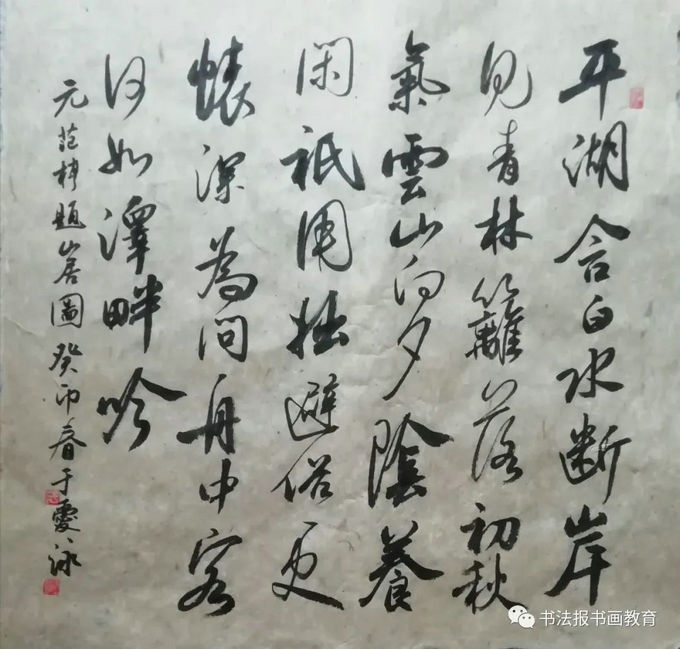 平湖合白水断岸
见青林籬落初秋
氣雲山向夕陰養
闲祇用拙避俗更
懷深為问舟中客
何如澤畔吟
元范梈题山居圖癸卯春于泳
书法报书画教育